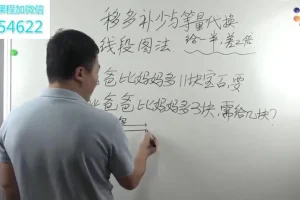 果程加微信
54622
移多补少与等量代换
线段图法 给一半,差2倍
爸比妈妈多11块宝石,要
爸爸比妈妈多3块,需给几块?